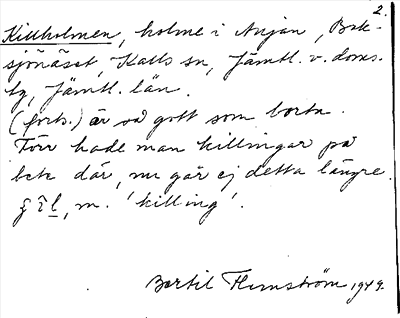 2.
Killholmen, holme i Anjan, Bak-
sjönäset, Kalls sn, Jämtl. v. doms.
Jämtl. län.
(forts.) är så gott som borta.
Förr hade man killingar på
bete där, nu går ej detta längre.
m. 'killing'.
Bertil Flemström 1949.